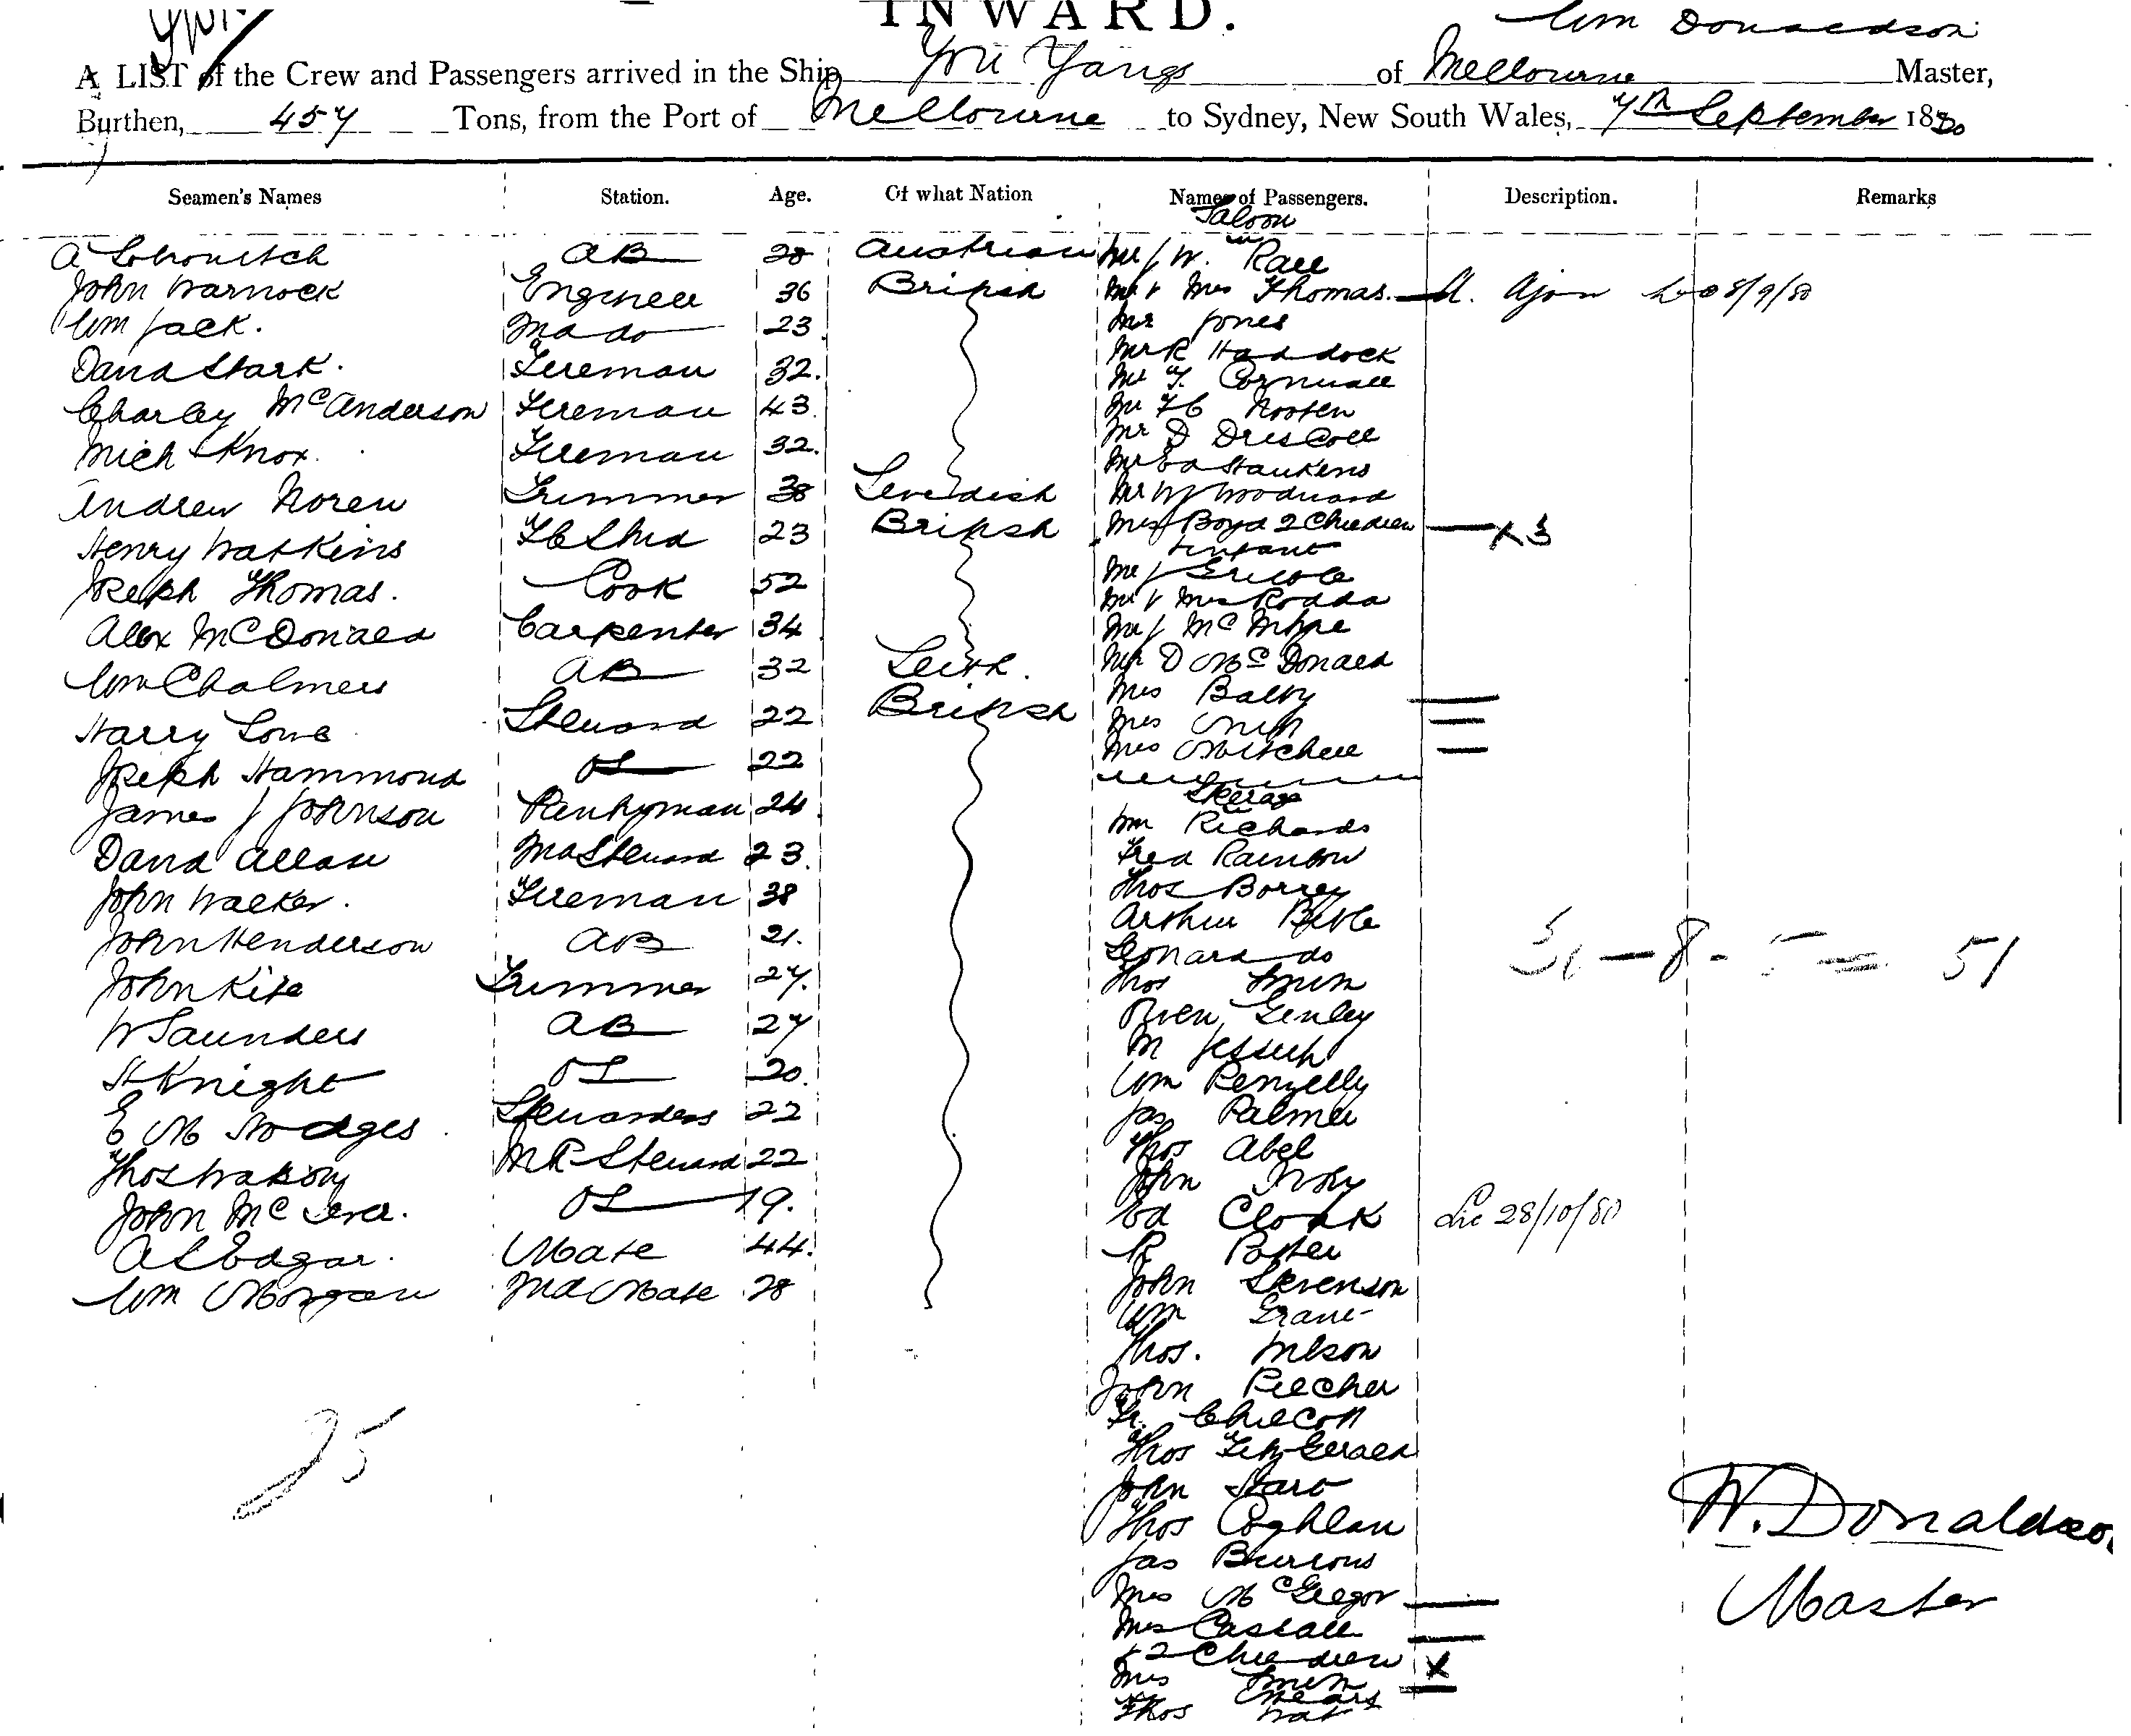 INWARD.
Wm Donaldson
A LIST of the Crew and Passengers arrived in the Ship You Yangs of Melbourne Master,
Burthen, 457 Tons, from the Port of Melbourne to Sydney, New South Wales, 7th September 1880
Seamen's Names Station. Age. Of what Nation Names of Passengers. Description. Remarks
Saloon
A AB 28 Austrian Mr J W. Rae
John Warnock Engineer 36 British Mr & Mrs Thomas 8/9/80
Wm Jack. 2nd do 23 Mr Jones
Mr R Haddock
David Stark. Fireman 32. Mr T. Cornwall
Charley McAnderson Fireman 43. Mr
Mr D Driscoll
Mich Knox. Fireman 32. Mr Ed Hawkens
Andrew Noren Trimmer 38 Swedish Mr W Woodward
Henry Watkins 23 British Mrs Boyd 2 Children x 3
& infant
Joseph Thomas. Cook 52 Mr J
Mr & Mrs Rodda
Alex McDonald Carpenter 34 Mr J McIntyre
Wm Chalmers AB 32 Leith. Mr D McDonald
Mrs
Harry Lowe Steward 22 British Mrs
Mrs Mitchell
Joseph Hammond OS 22
Steerage
James J Johnson Pantryman 24 Wm Richards
David Allan Steward 23. Fred Rainbow
John Walker. Fireman 38 Thos Borrey
Arthur Beble
John Henderson AB 21. Leonard do
John Kite Trimmer 27. Thos Smith
W Saunders AB 27 Owen Genley
M Jessup
H Knight OS 20. Wm Pengelly
E M Hodges Stewardess 22 Jas Palmer
Thos Watson MR Steward 22 Thos Abel
John Ivory
John McIver. OS 19. Ed Cloak 28/10/80
A L Edgar. Mate 44. R Potter
Wm Morgan 2nd Mate 28 John Stevenson
Wm Grant
Thos. Wilson
John Pilcher
Chilcott
25 Thos FitzGerald
John Start
Thos Coghlan W. Donaldson
Jas Burrows
Mrs McGregor Master
Mrs Castall
& 2 Children x
Mrs Smith
Thos